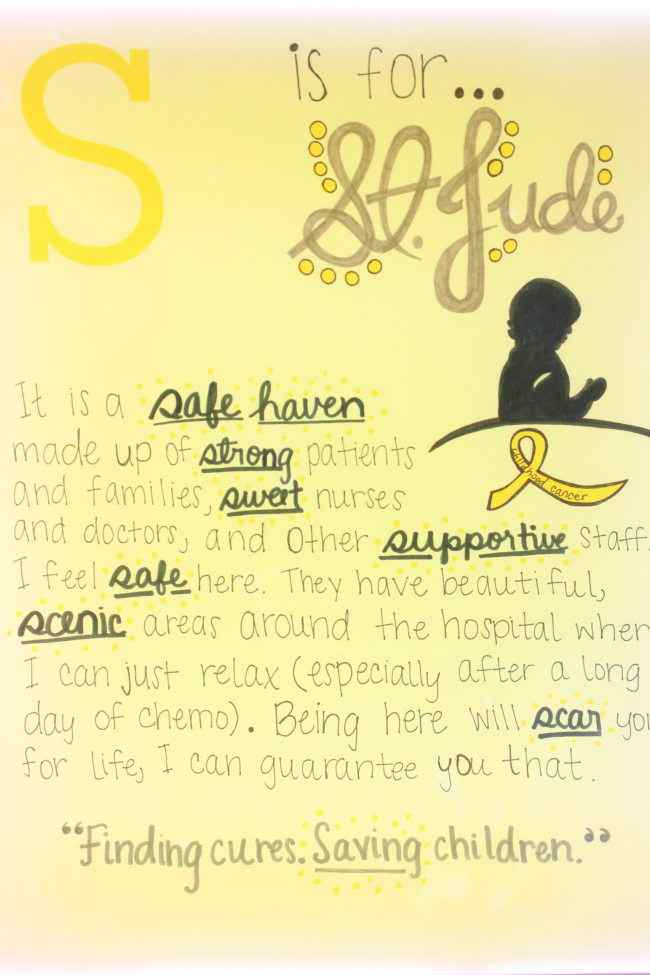 S is for...
St. Jude
It is a safe haven
made up of strong patients
and families, sweet nurses
childhood cancer
and doctors, and other supportive staff.
I feel safe here. They have beautiful,
scenic areas around the hospital wher
I can just relax (especially after a long
day of chemo). Being here will scar you
for life, I can guarantee you that.
"Finding cures. Saving children."